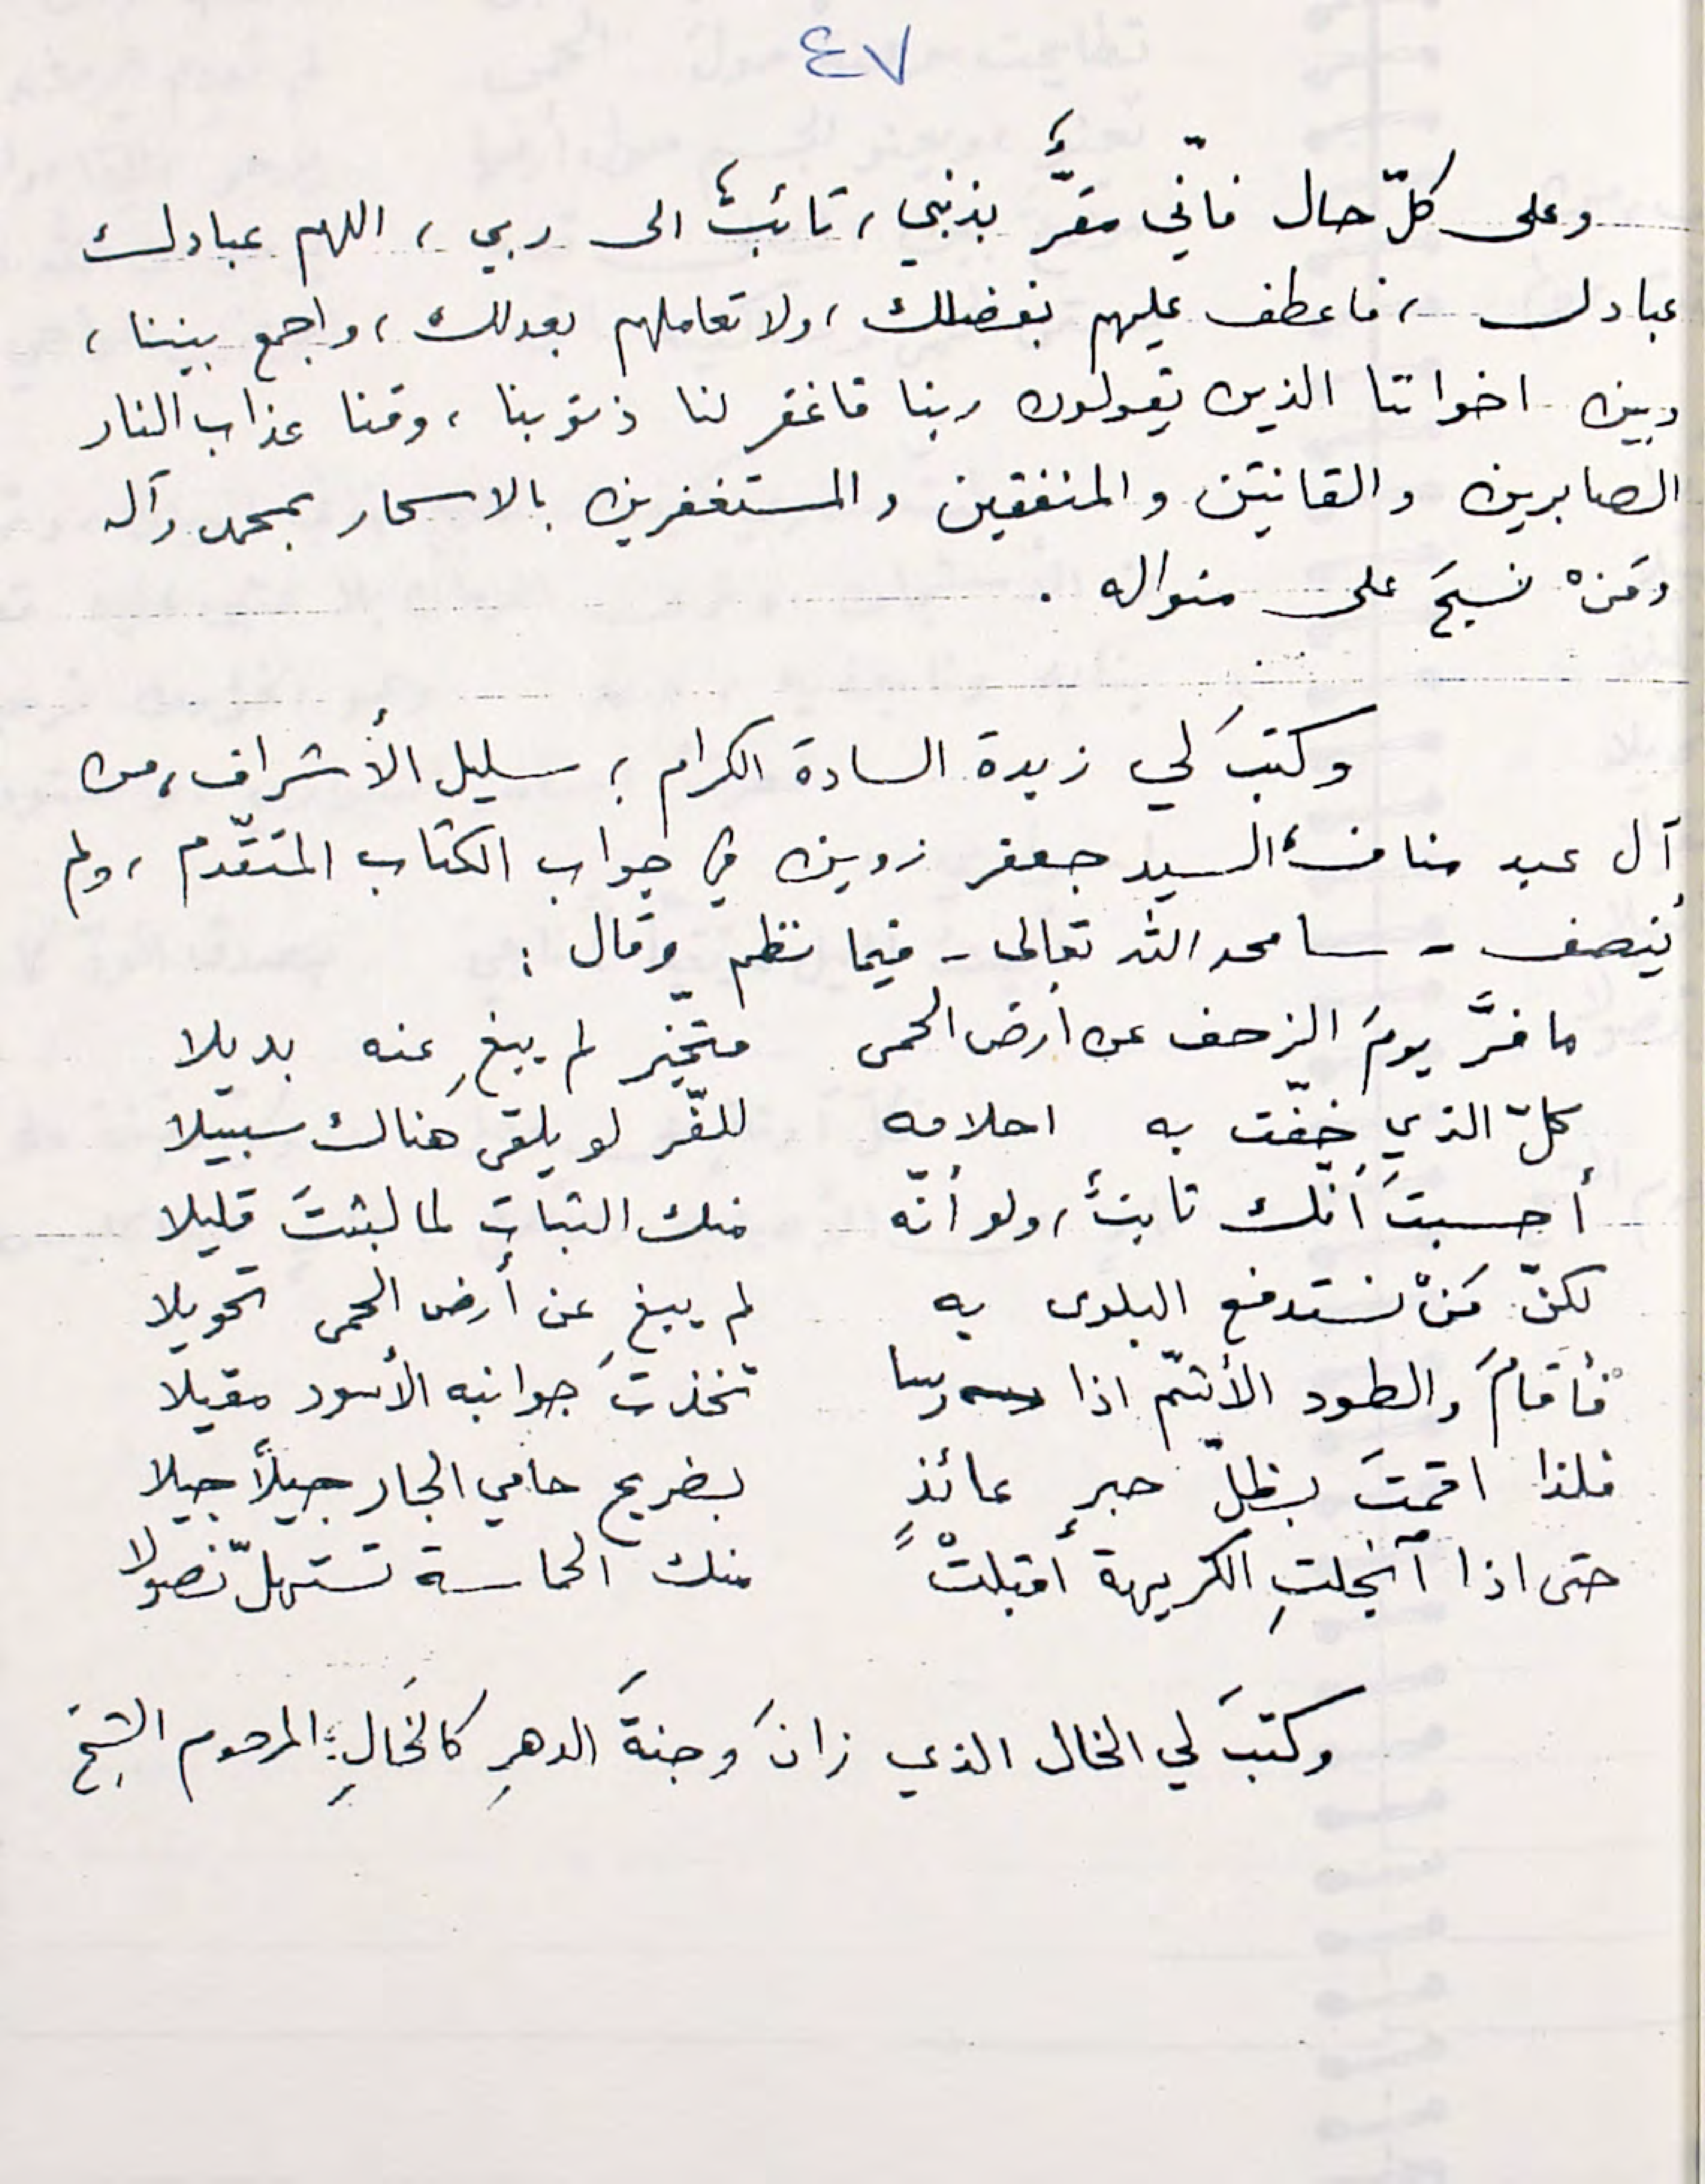 ٤٧
وعلى كلّ حال فأنّي مقرٌّ بذنبي، تائبٌ الى ربي، اللهم عبادك
عبادك، فاعطف عليهم بفضلك، ولا تعاملهم بعدلك، واجمع بيننا،
وبين اخواننا الذين يقولون ربنا فاغفر لنا ذنوبنا، وقنا عذاب النار
الصابرين والقانتين والمنفقين والمستغفرين بالاسحار بمحمد وآله
ومَنْ نسجَ على منواله .
وكتبَ لي زبدة السادة الكرام، سليل الأشراف، من
آل عبد مناف، السيد جعفر زوين في جواب الكتاب المتقدّم، ولم
يُنصف - سامحه الله تعالى - فيما نظم وقال :
ما فرَّ يومَ الزحف عن أرض الحمى متحيّز لم يبغِ عنه بديلا
كلّ الذي خفّت به احلامه للفّر لو يلقى هناك سبيلا
أحسبتَ أنّك ثابتٌ، ولو أنّه منك الثبات لما لبثتَ قليلا
لكنّ مَنْ نستدفع البلوى به لم يبغِ عن أرض الحمى تحويلا
فأقامَ والطود الأشمّ اذا رسا تخذتَ جوانبه الأسود مقيلا
فلذا اقمتَ بظلّ حبرٍ عائذٍ بضريح حامي الجار جيلاً جيلا
حتى اذا آنجلتِ الكريهة أقبلتْ منك الحماسة تستهلّ نصولا
وكتبَ لي الخال الذي زانَ وجنةَ الدهرِ كالخَالِ: المرحوم الشيخ